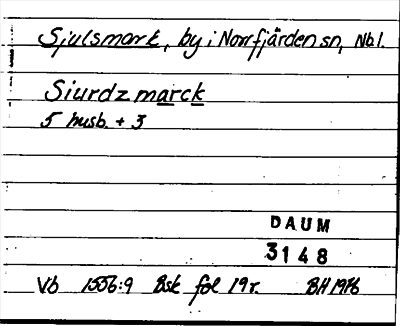 Sjulsmark, by i Norrfjärden sn, Nbl.
Siurdzmarck
5 husb. + 3
DAUM
3148
Vb 1556:9 Bsk fol 19r. BH 1976